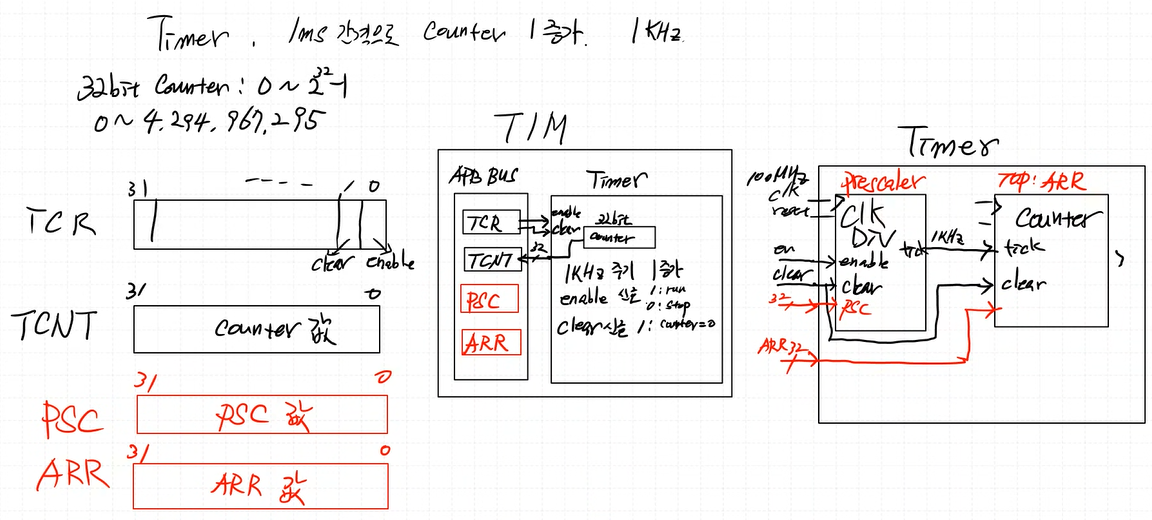 Timer. 1ms 간격으로 Counter 1 증가. 1KHz.
32bit Counter : 0 ~ 2^32-1
0 ~ 4,294,967,295
TCR
31 ---- 1 0
clear enable
TCNT
31 0
Counter 값
PSC
31 0
PSC 값
ARR
31 0
ARR 값
TIM
APB BUS
TCR
TCNT
PSC
ARR
enable
clear
32
Timer
32bit
Counter
1KHz 주기 1증가
enable 신호 1: run
0: stop
clear 신호 1: Counter=0
Timer
100MHz
clk
reset
en
clear
32
ARR 32
prescaler
CLK
DIV
tick
enable
clear
PSC
1KHz
TOP: ARR
Counter
tick
clear